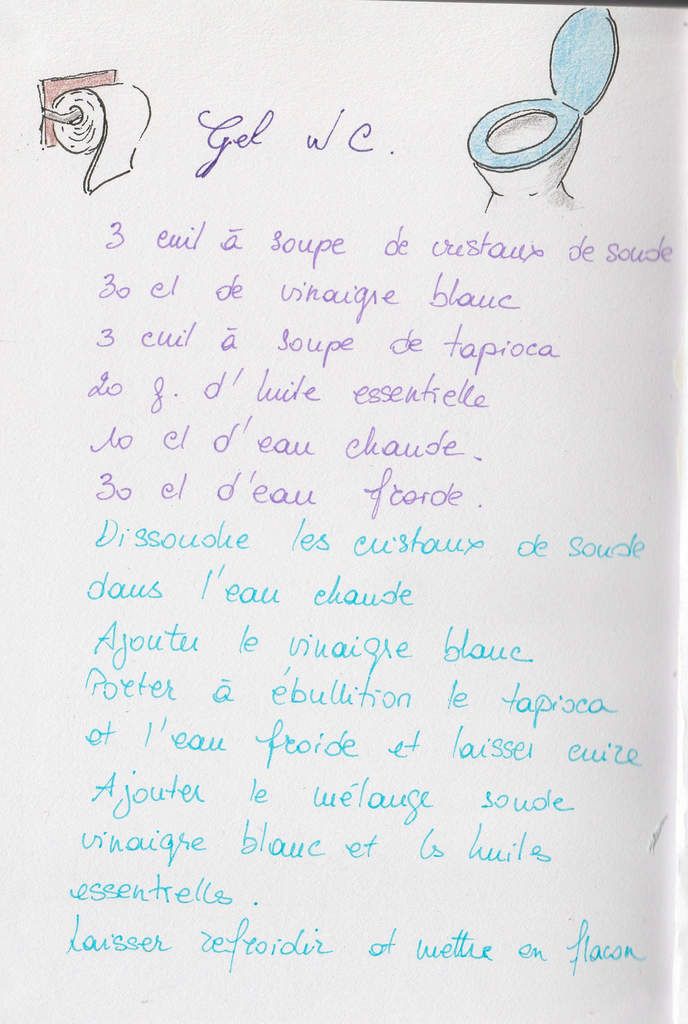 Gel WC.
3 cuil à soupe de cristaux de soude
30 cl de vinaigre blanc
3 cuil à soupe de tapioca
20 g. d'huile essentielle
10 cl d'eau chaude.
30 cl d'eau froide.
Dissoudre les cristaux de soude
dans l'eau chaude
Ajouter le vinaigre blanc
Porter à ébullition le tapioca
et l'eau froide et laisser cuire
Ajouter le mélange soude
vinaigre blanc et les huiles
essentielles.
Laisser refroidir et mettre en flacon